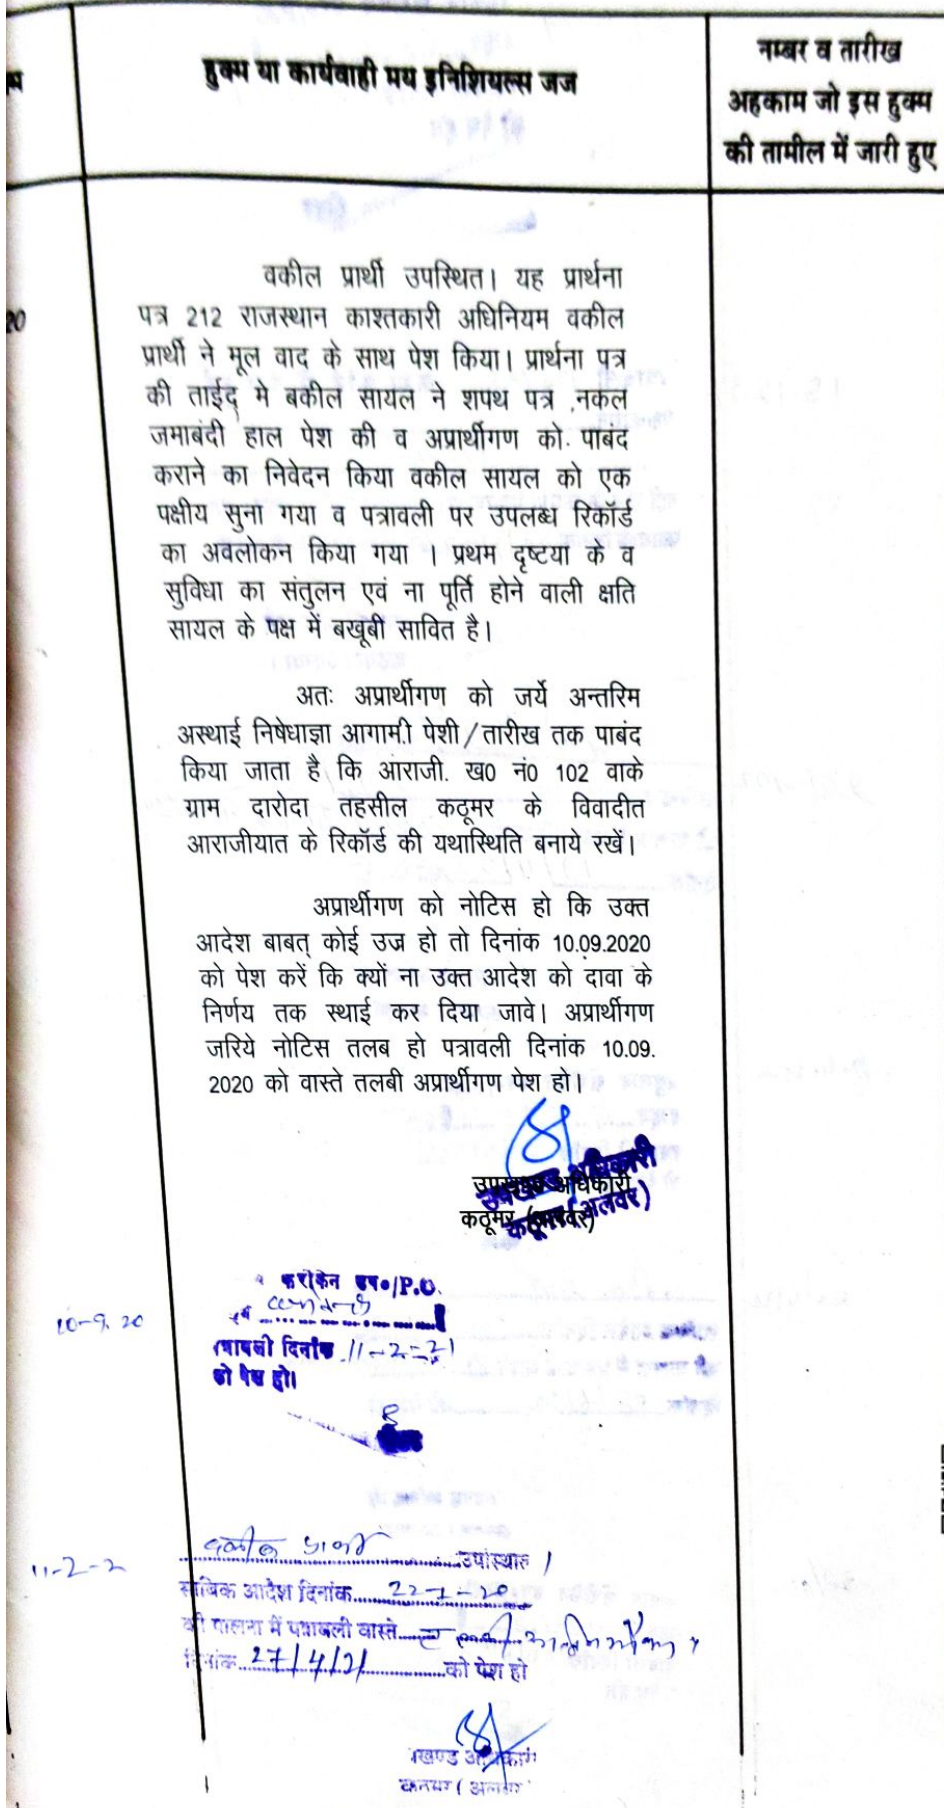 हुक्म या कार्यवाही मय इनिशियल्स जज
नम्बर व तारीख
अहकाम जो इस हुक्म
की तामील में जारी हुए
वकील प्रार्थी उपस्थित। यह प्रार्थना
पत्र 212 राजस्थान काश्तकारी अधिनियम वकील
प्रार्थी ने मूल वाद के साथ पेश किया। प्रार्थना पत्र
की ताईद् मे बकील सायल ने शपथ पत्र ,नकल
जमाबंदी हाल पेश की व अप्रार्थीगण को. पाबंद
कराने का निवेदन किया वकील सायल को एक
पक्षीय सुना गया व पत्रावली पर उपलब्ध रिकॉर्ड
का अवलोकन किया गया । प्रथम दृष्टया के व
सुविधा का संतुलन एवं ना पूर्ति होने वाली क्षति
सायल के पक्ष में बखूबी सावित है।
अतः अप्रार्थीगण को जर्ये अन्तरिम
अस्थाई निषेधाज्ञा आगामी पेशी/तारीख तक पाबंद
किया जाता है कि आराजी. ख0 नं0 102 वाके
ग्राम दारोदा तहसील कठूमर के विवादीत
आराजीयात के रिकॉर्ड की यथास्थिति बनाये रखें।
अप्रार्थीगण को नोटिस हो कि उक्त
आदेश बाबत् कोई उज्र हो तो दिनांक 10.09.2020
को पेश करें कि क्यों ना उक्त आदेश को दावा के
निर्णय तक स्थाई कर दिया जावे। अप्रार्थीगण
जरिये नोटिस तलब हो पत्रावली दिनांक 10.09.
2020 को वास्ते तलबी अप्रार्थीगण पेश हो।
उपखण्ड अधिकारी
कठूमर (अलवर)
उपखण्ड अधिकारी
कठूमर (अलवर)
10-9-20
फरीकेन उप०/P.O.
पत्रावली दिनांक 11-2-21
को पेश हो।
11-2-2
वकील प्रार्थी उपस्थित।
साबिक आदेश दिनांक 22-7-20
की पालना में पत्रावली वास्ते
दिनांक 27/4/21 को पेश हो